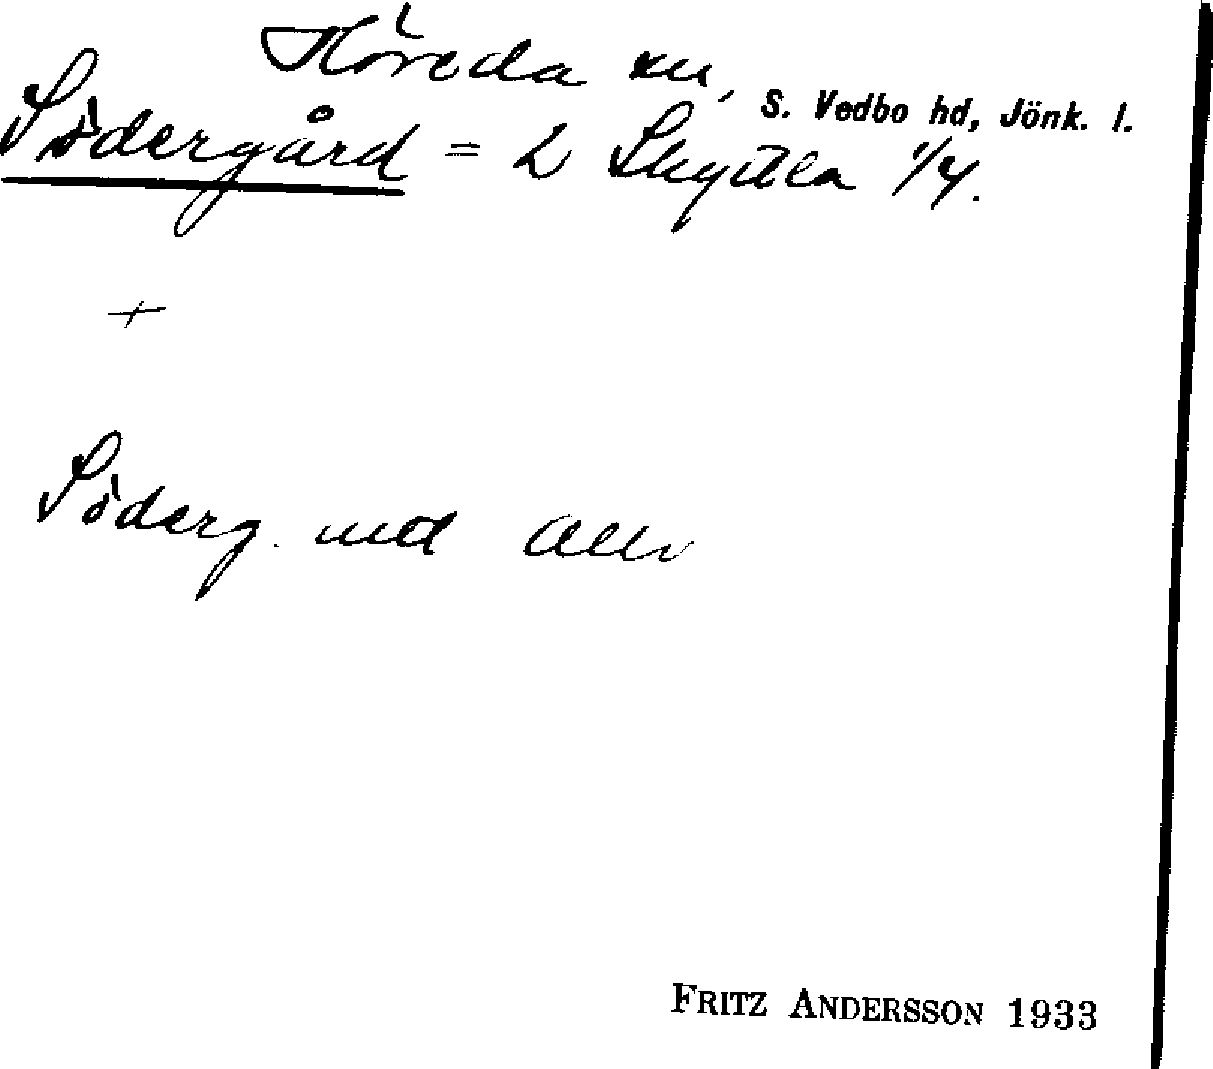 Höreda sn, S. Vedbo hd, Jönk. l.
Södergård = L Skyttla 1/4.
+
Söderg. med
FRITZ ANDERSSON 1933